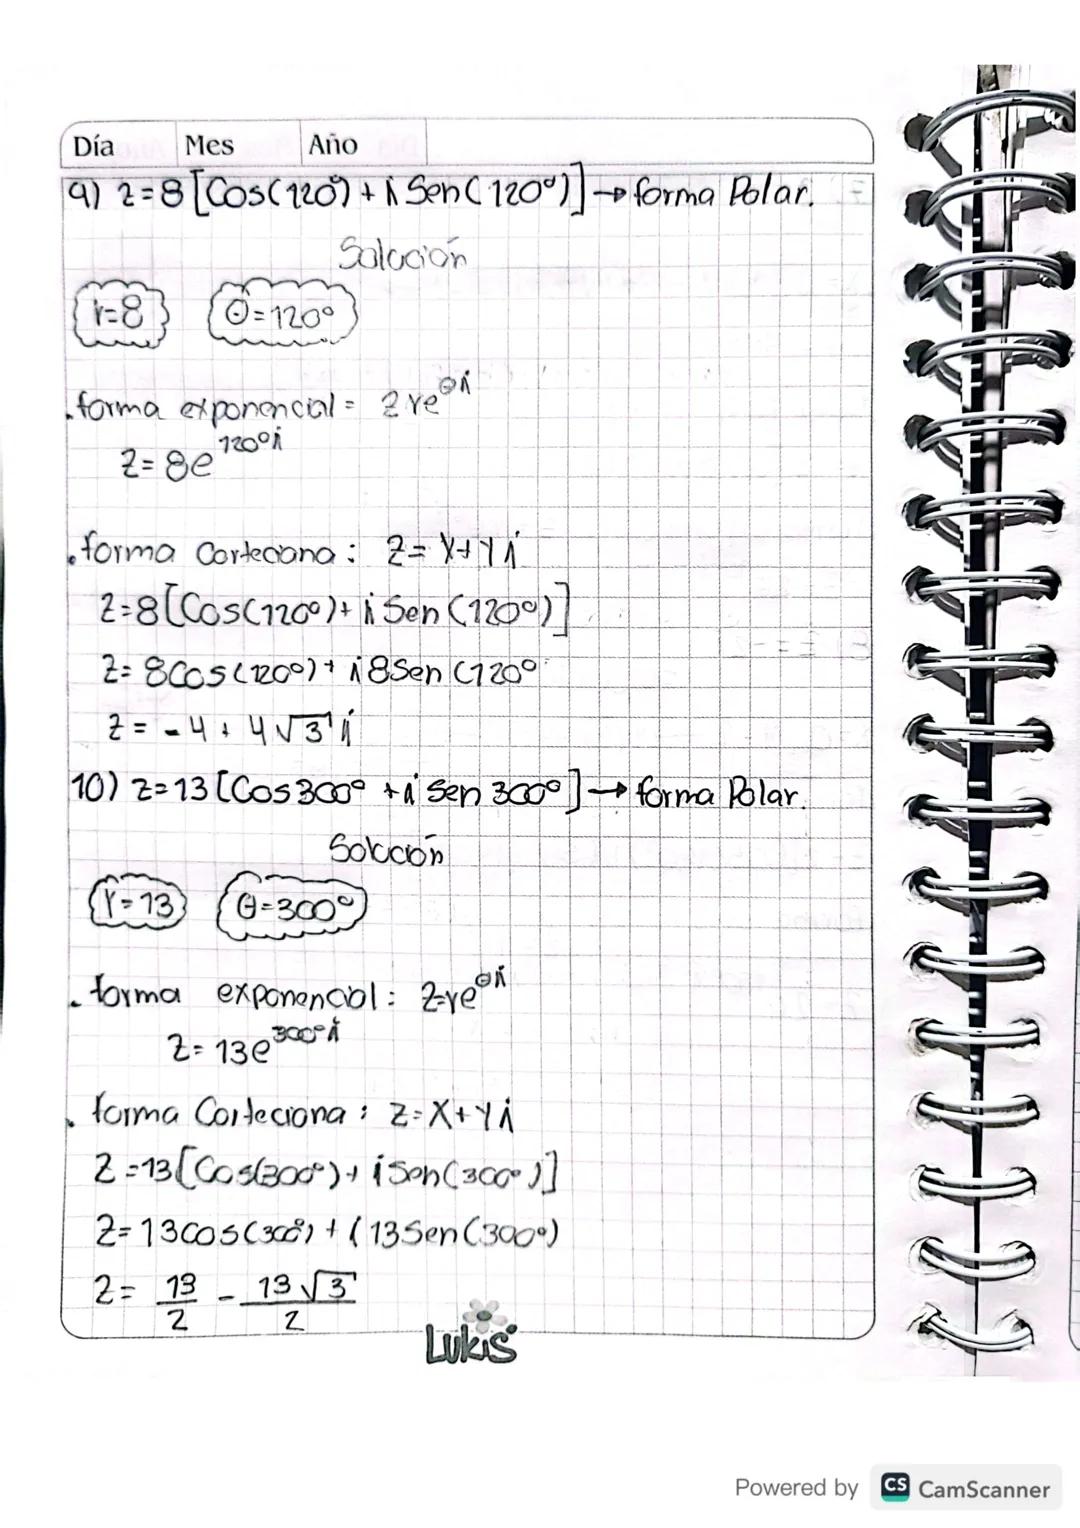 Día Mes Año
9) z=8[Cos(120°)+i Sen(120°)]→forma Polar.
Solución
r=8 θ=120°
.forma exponencial= z re^θi
z=8e^120°i
.forma Carteciana: z=x+yi
z=8[Cos(120°)+iSen(120°)]
z=8Cos(120°)+i8Sen(120°
z=-4+4√3 i
10) z=13[Cos300°+i Sen 300°]→forma Polar.
Solución
r=13 θ=300°
.forma exponencial: z=re^θi
z=13e^300°i
.forma Carteciana: z=x+yi
z=13[Cos(300°)+iSen(300°)]
z=13cos(300°)+(13Sen(300°)
z= 13/2 - 13√3/2
Lukis
Powered by CS CamScanner